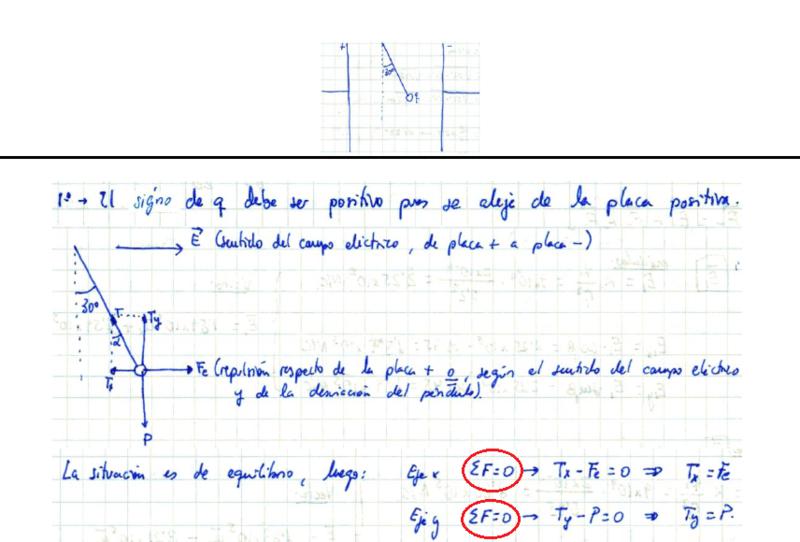 + -
30°
q
1º → El signo de q debe ser positivo pues se aleja de la placa positiva.
E (sentido del campo eléctrico, de placa + a placa -)
30°
T Ty
α
Tx
Fe (repulsión respecto de la placa + o, según el sentido del campo eléctrico
y de la desviación del péndulo).
P
La situación es de equilibrio, luego: Eje x ΣF=0 → Tx - Fe = 0 ⇒ Tx = Fe
Eje y ΣF=0 → Ty - P = 0 ⇒ Ty = P.